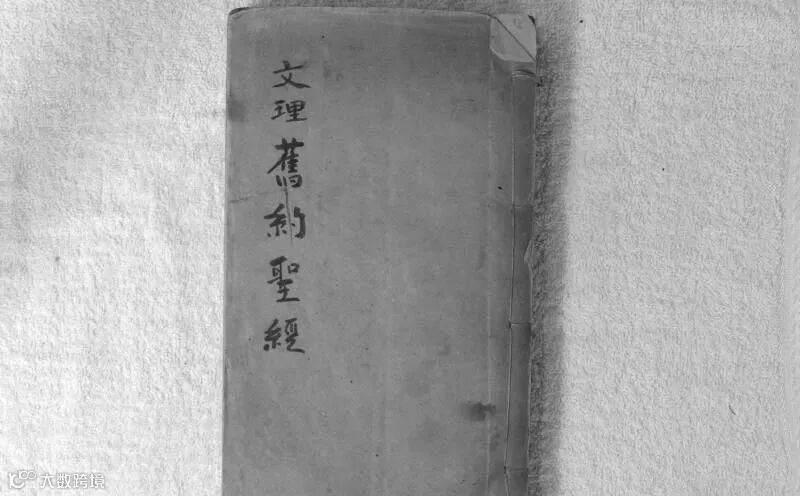 文理舊約聖經
大数跨境